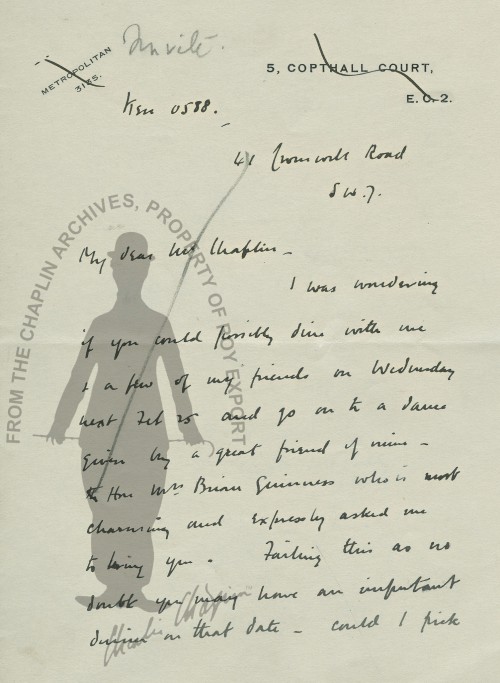 Invité.
METROPOLITAN
3135.
5, COPTHALL COURT,
E.C.2.
Ken 0588.
41 Cromwell Road
S.W.7.
My dear Mr Chaplin –
I was wondering
if you could possibly dine with me
& a few of my friends on Wednesday
next Feb 25 and go on to a dance
given by a great friend of mine –
the Hon Mrs Brian Guinness who is most
charming and expressly asked me
to bring you. Failing this as no
doubt you may have an important
dinner on that date – could I pick
Charlie Chaplin
FROM THE CHAPLIN ARCHIVES, PROPERTY OF ROY EXPORT